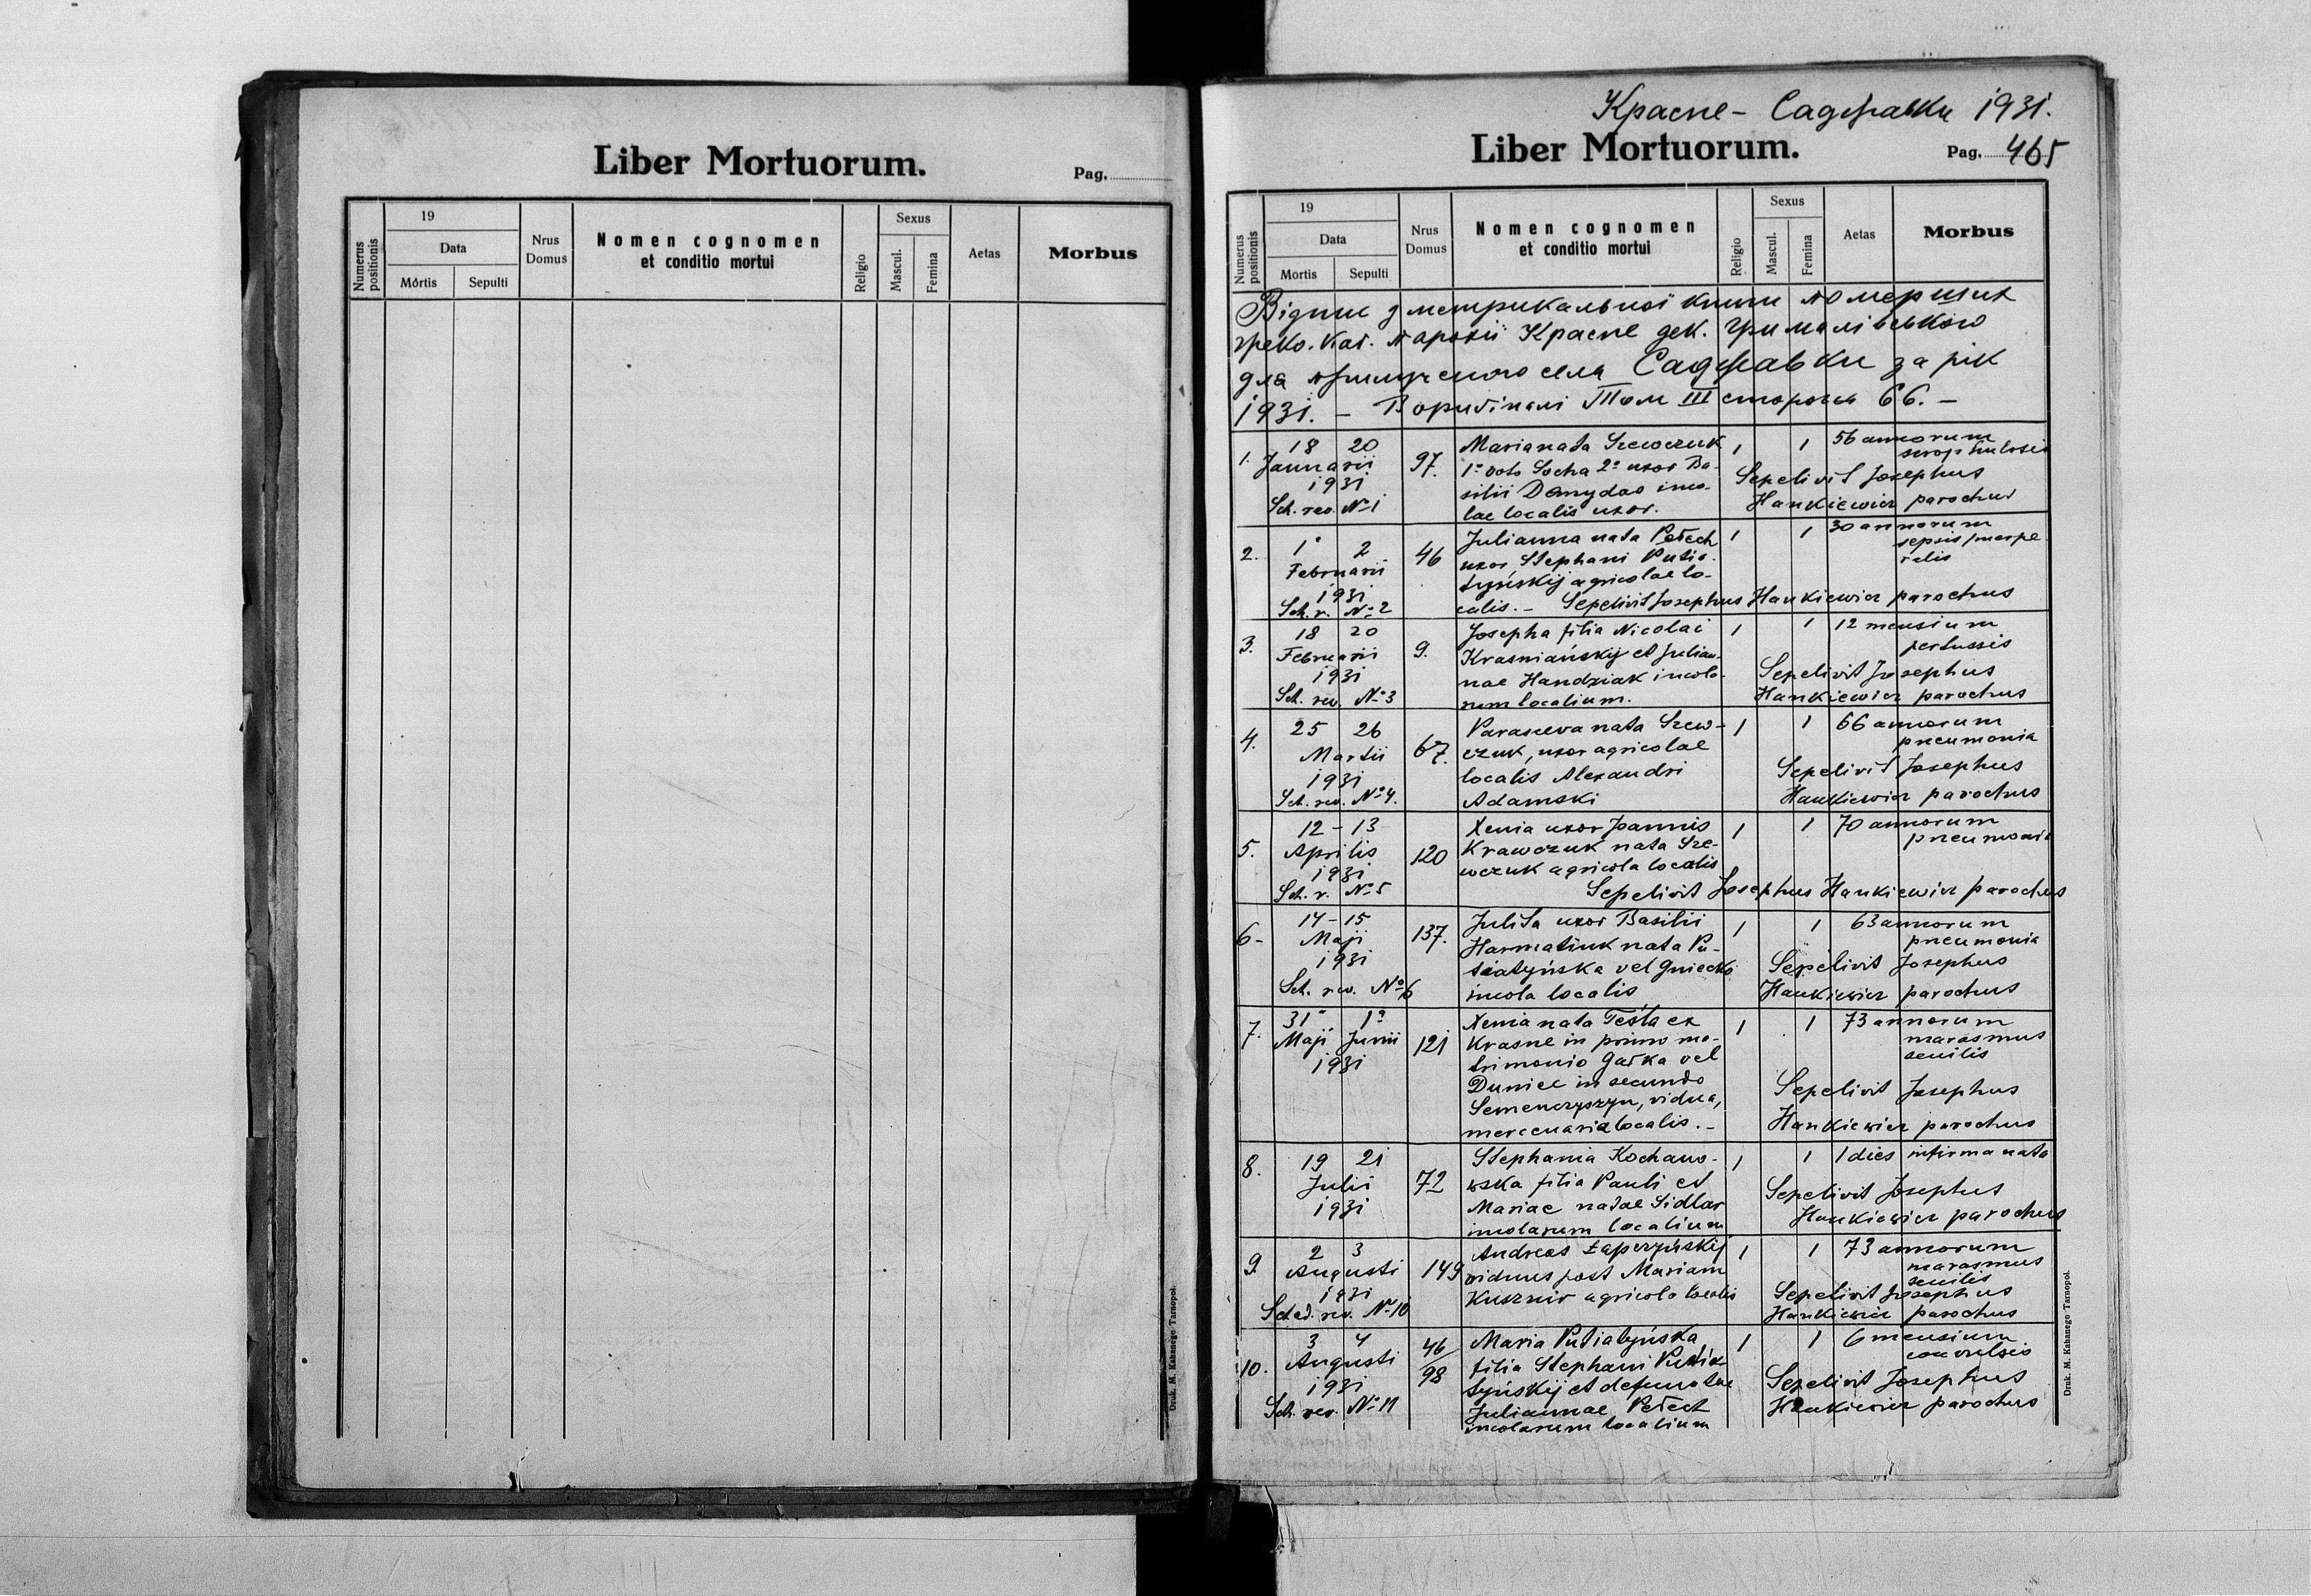 Liber Mortuorum.
Pag.
Numerus positionis
19
Data
Mortis
Sepulti
Nrus Domus
Nomen cognomen
et conditio mortui
Religio
Sexus
Mascul.
Femina
Aetas
Morbus
Druk. M. Kahanego Tarnopol.
Красне - Саджавки 1931.
Liber Mortuorum.
Pag. 465
Numerus positionis
19
Data
Mortis
Sepulti
Nrus Domus
Nomen cognomen
et conditio mortui
Religio
Sexus
Mascul.
Femina
Aetas
Morbus
Відпис з метрикальної книги померших
греко. кат. парохії Красне дек. Грималівського
для прилученого села Саджавки за рік
1931. - В оригіналі Том III сторона 66. -
1. 18 20 97. Maria nata Szewczuk 1 1 56 annorum
Januarii 1º voto Socha 2º uxor Ba- scrophulosis
1931 silii Danydao inco- Sepelivit Josephus
Sch. rev. Nº 1 lae localis uxor. Hankiewicz parochus
2. 1º 2 46 Julianna nata Pełech 1 1 30 annorum
Februarii uxor Stephani Putia- sepsis puerpe-
1931 tyńskij agricolae lo- ralis
Sch. r. Nº 2 calis. - Sepelivit Josephus Hankiewicz parochus
3. 18 20 9. Josepha filia Nicolai 1 1 12 mensium
Februarii Krasniańskij et Julian- pertussis
1931 nae Handziak incola- Sepelivit Josephus
Sch. rev. Nº 3 rum localium. Hankiewicz parochus
4. 25 26 67. Parasceva nata Szew- 1 1 66 annorum
Martii czuk, uxor agricolae pneumonia
1931 localis Alexandri Sepelivit Josephus
Sch. rev. Nº 4. Adamski Hankiewicz parochus
5. 12 - 13 120 Xenia uxor Joannis 1 1 70 annorum
Aprilis Krawczuk nata Sze- pneumonia
1931 wczuk agricola localis
Sch. r. Nº 5 Sepelivit Josephus Hankiewicz parochus
6 - 14 - 15 137. Julita uxor Basilii 1 1 63 annorum
Maji Harmatiuk nata Pu- pneumonia
1931 tiatyńska vel Gniecko Sepelivit Josephus
Sch. rev. Nº 6 incola localis Hankiewicz parochus
7. 31º 1º 121 Xenia nata Teśla ex 1 1 73 annorum
Maji Junii Krasne in primo ma- marasmus
1931 trimonio Gałka vel senilis
Duniec in secundo Sepelivit Josephus
Semenczyszyn, vidua,
mercenaria localis. - Hankiewicz parochus
8. 19 21 72 Stephania Kochano- 1 1 1 dies infirma nata
Julii wska filia Pauli et Sepelivit Josephus
1931 Mariae natae Sidlar Hankiewicz parochus
incolarum localium
9. 2 3 149 Andreas Łapszyńskij 1 1 73 annorum
Augusti viduus post Mariam marasmus
1931 Kusznir agricola localis senilis
Sched. rev. Nº 10 Sepelivit Josephus
Hankiewicz parochus
10. 3 4 46/98 Maria Putiatyńska 1 1 6 mensium
Augusti filia Stephani Putia- convulsio
1931 tyńskij et defunctae Sepelivit Josephus
Sch. rev. Nº 11 Juliannae Pełech Hankiewicz parochus
incolarum localium
Druk. M. Kahanego Tarnopol.